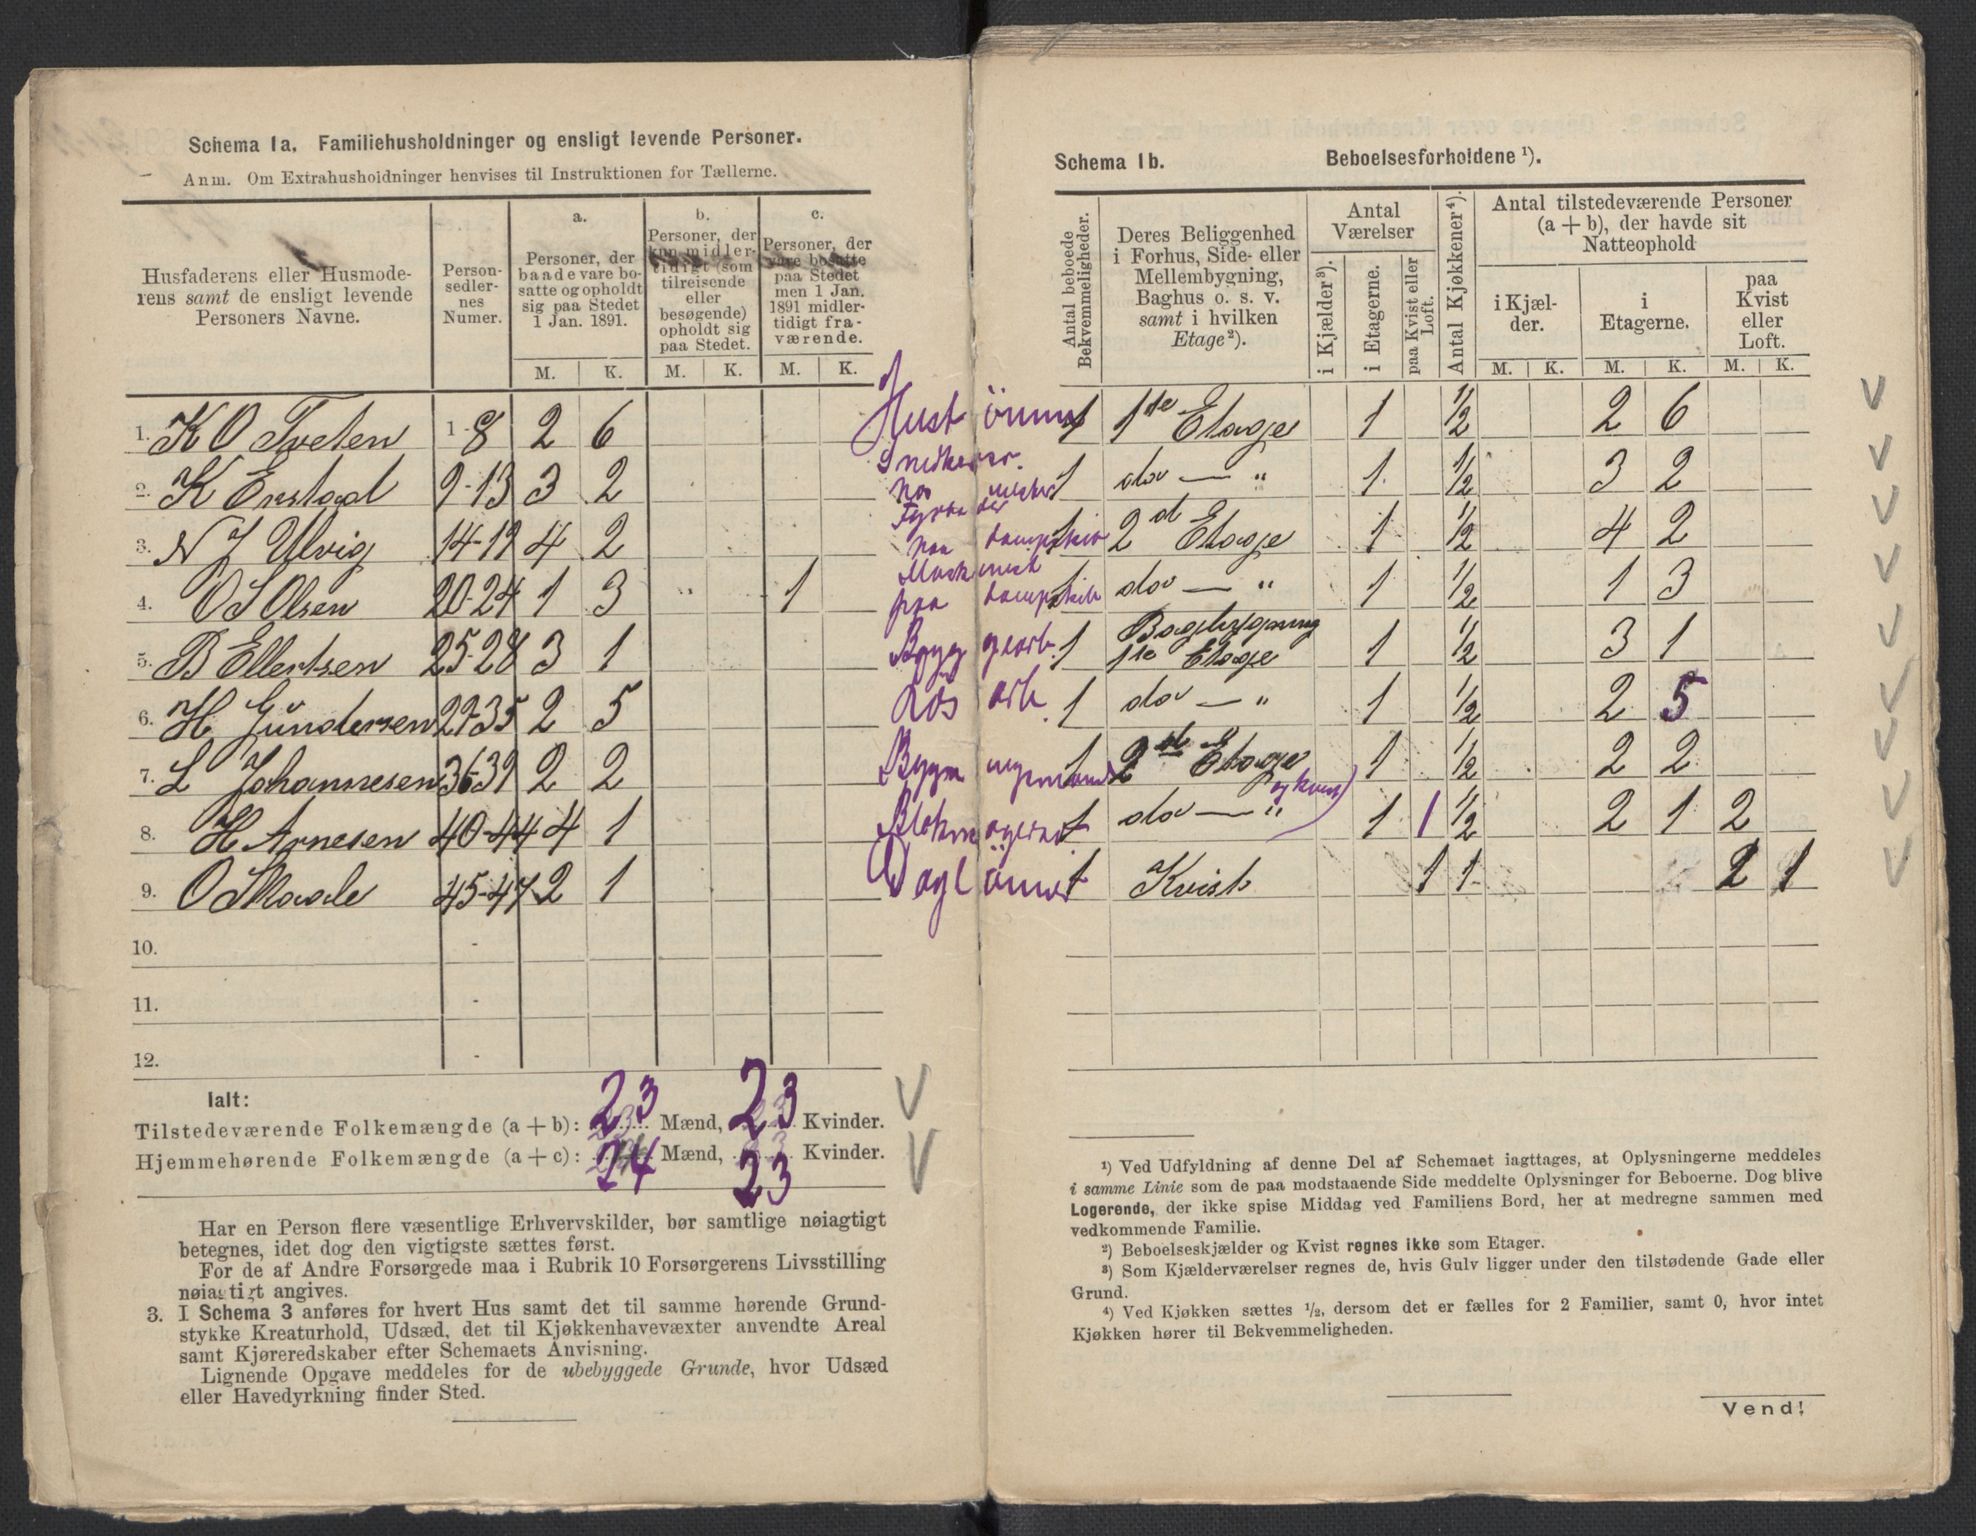 Schema 1a. Familiehusholdninger og ensligt levende Personer.
Anm. Om Extrahusholdninger henvises til Instruktionen for Tællerne.
Husfaderens eller Husmode-
rens samt de ensligt levende
Personers Navne.
Person-
sedler-
nes
Numer.
a.
Personer, der
baade vare bo-
satte og opholdt
sig paa Stedet
1 Jan. 1891.
b.
Personer, der
kun midler-
tidigt (som
tilreisende
eller
besøgende)
opholdt sig
paa Stedet.
c.
Personer, der
vare bosatte
paa Stedet
men 1 Jan.
1891 midler-
tidigt fra-
værende.
M. K. M. K. M. K.
1. K O Tveten 1-8 2 6
2. K Enstad 9-13 3 2
3. N J Ulvig 14-19 4 2
4. O S Olsen 20-24 1 3 " 1
5. B Ellertsen 25-28 3 1
6. H. Gundersen 29-35 2 5
7. L Johannesen 36-39 2 2
8. H Arnesen 40-44 4 1
9. O Skaale 45-47 2 1
10. -
11. -
12. -
Ialt:
Tilstedeværende Folkemængde (a + b): 23 Mænd, 23 Kvinder.
Hjemmehørende Folkemængde (a + c): 24 Mænd, 23 Kvinder.
Har en Person flere væsentlige Erhvervskilder, bør samtlige nøiagtigt
betegnes, idet dog den vigtigste sættes først.
For de af Andre Forsørgede maa i Rubrik 10 Forsørgerens Livsstilling
nøiagtigt angives.
3. I Schema 3 anføres for hvert Hus samt det til samme hørende Grund-
stykke Kreaturhold, Udsæd, det til Kjøkkenhavevæxter anvendte Areal
samt Kjøreredskaber efter Schemaets Anvisning.
Lignende Opgave meddeles for de ubebyggede Grunde, hvor Udsæd
eller Havedyrkning finder Sted.
Schema 1b. Beboelsesforholdene ¹).
Antal beboede
Bekvemmeligheder.
Deres Beliggenhed
i Forhus, Side- eller
Mellembygning,
Baghus o. s. v.
samt i hvilken
Etage²).
Antal
Værelser
i Kjælder³).
i Etagerne.
paa Kvist eller
Loft.
Antal Kjøkkener⁴).
Antal tilstedeværende Personer
(a + b), der havde sit
Natteophold
i Kjæl-
der.
i
Etagerne.
paa
Kvist
eller
Loft.
M. K. M. K. M. K.
1 1ste Etage 1 ½ 2 6
Snedkersv.
1 do — " 1 ½ 3 2
1 2d Etage 1 ½ 4 2
Maskinist
paa Dampskib 1 do — " 1 ½ 1 3
Bygg 1 Bagbygning
1ste Etage 1 ½ 3 1
Løs arb. 1 do — " 1 ½ 2 5
1 2d Etage 1 ½ 2 2
og kvist)
1 do — " 1 1 ½ 2 1 2
Daglönner 1 Kvist 1 1 2 1
¹) Ved Udfyldning af denne Del af Schemaet iagttages, at Oplysningerne meddeles
i samme Linie som de paa modstaaende Side meddelte Oplysninger for Beboerne. Dog blive
Logerende, der ikke spise Middag ved Familiens Bord, her at medregne sammen med
vedkommende Familie.
²) Beboelseskjælder og Kvist regnes ikke som Etager.
³) Som Kjælderværelser regnes de, hvis Gulv ligger under den tilstødende Gade eller
Grund.
⁴) Ved Kjøkken sættes ½, dersom det er fælles for 2 Familier, samt 0, hvor intet
Kjøkken hører til Bekvemmeligheden.
Vend!